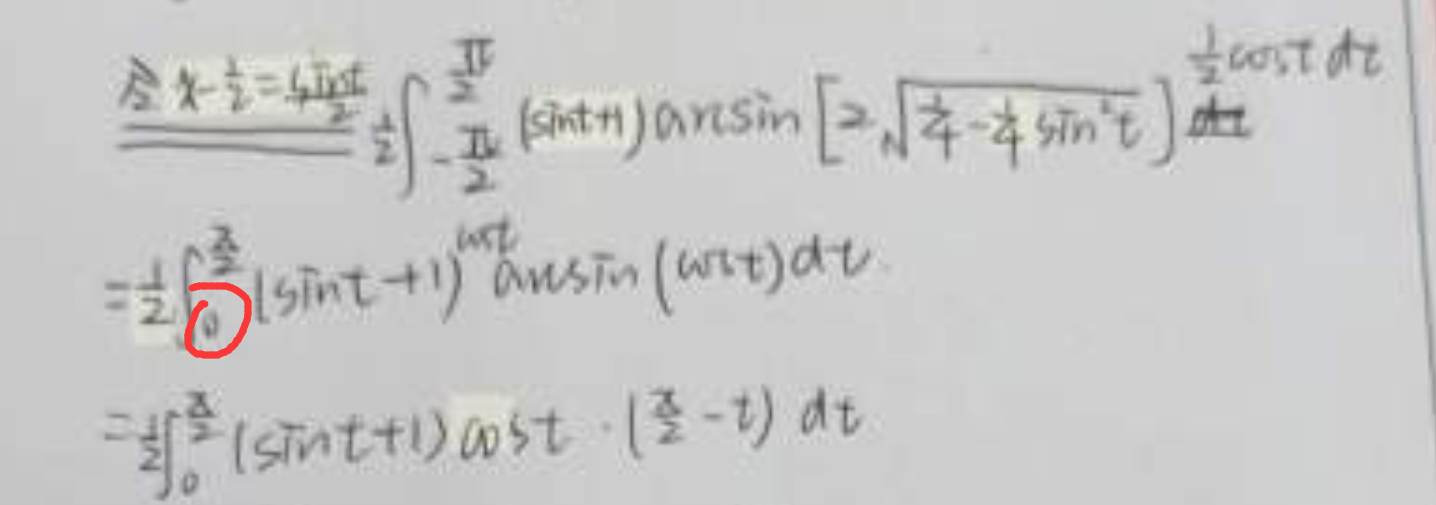 令 x-1/2=sint/2 1/2∫_{-π/2}^{π/2} (sint+1)arcsin[2√(1/4-1/4 sin²t)] 1/2 cost dt
=1/2∫_0^{π/2}(sint+1)cost arcsin(cost)dt
=1/2∫_0^{π/2}(sint+1)cost·(π/2-t) dt